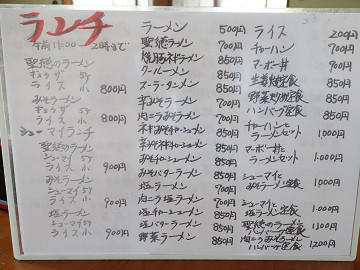 ランチ
午前11:00 〜 2時まで
聖徳のラーメン
ギョウザ 5ヶ
ライス 小 800円
みそラーメン
ギョウザ 5ヶ
ライス 小 800円
シューマイランチ
聖徳のラーメン
シューマイ5ヶ
ライス 小 900円
みそラーメン
シューマイ5ヶ
ライス 小 900円
塩ラーメン
シューマイ5ヶ
ライス 小 900円
ラーメン 500円
聖徳ラーメン 700円
焼豚ネギラーメン 850円
クールーメン 850円
スーラータンメン 850円
辛みそラーメン 700円
肉ニララーメン 850円
ネギみそチャーシューメン
みそチャーシューメン 850円
辛みそチャーシューメン 850円
みそバターラーメン 850円
塩ラーメン 700円
肉ニラ塩ラーメン 850円
塩チャーシューメン 850円
塩バターラーメン 850円
野菜ラーメン 850円
ライス 200円
チャーハン 700円
マーボー丼 700円
生姜焼定食 850円
野菜炒め定食 850円
ハンバーグ定食 850円
チャーハンと
ラーメンセット 1,000円
マーボー丼と
ラーメンセット 1,000円
シューマイと
みそラーメン定食 1,000円
シューマイと
塩ラーメン定食 1,000円
聖徳のラーメン
ハンバーグ定食 1,100円
肉ニラみそラーメン
ハンバーグ定食 1,200円